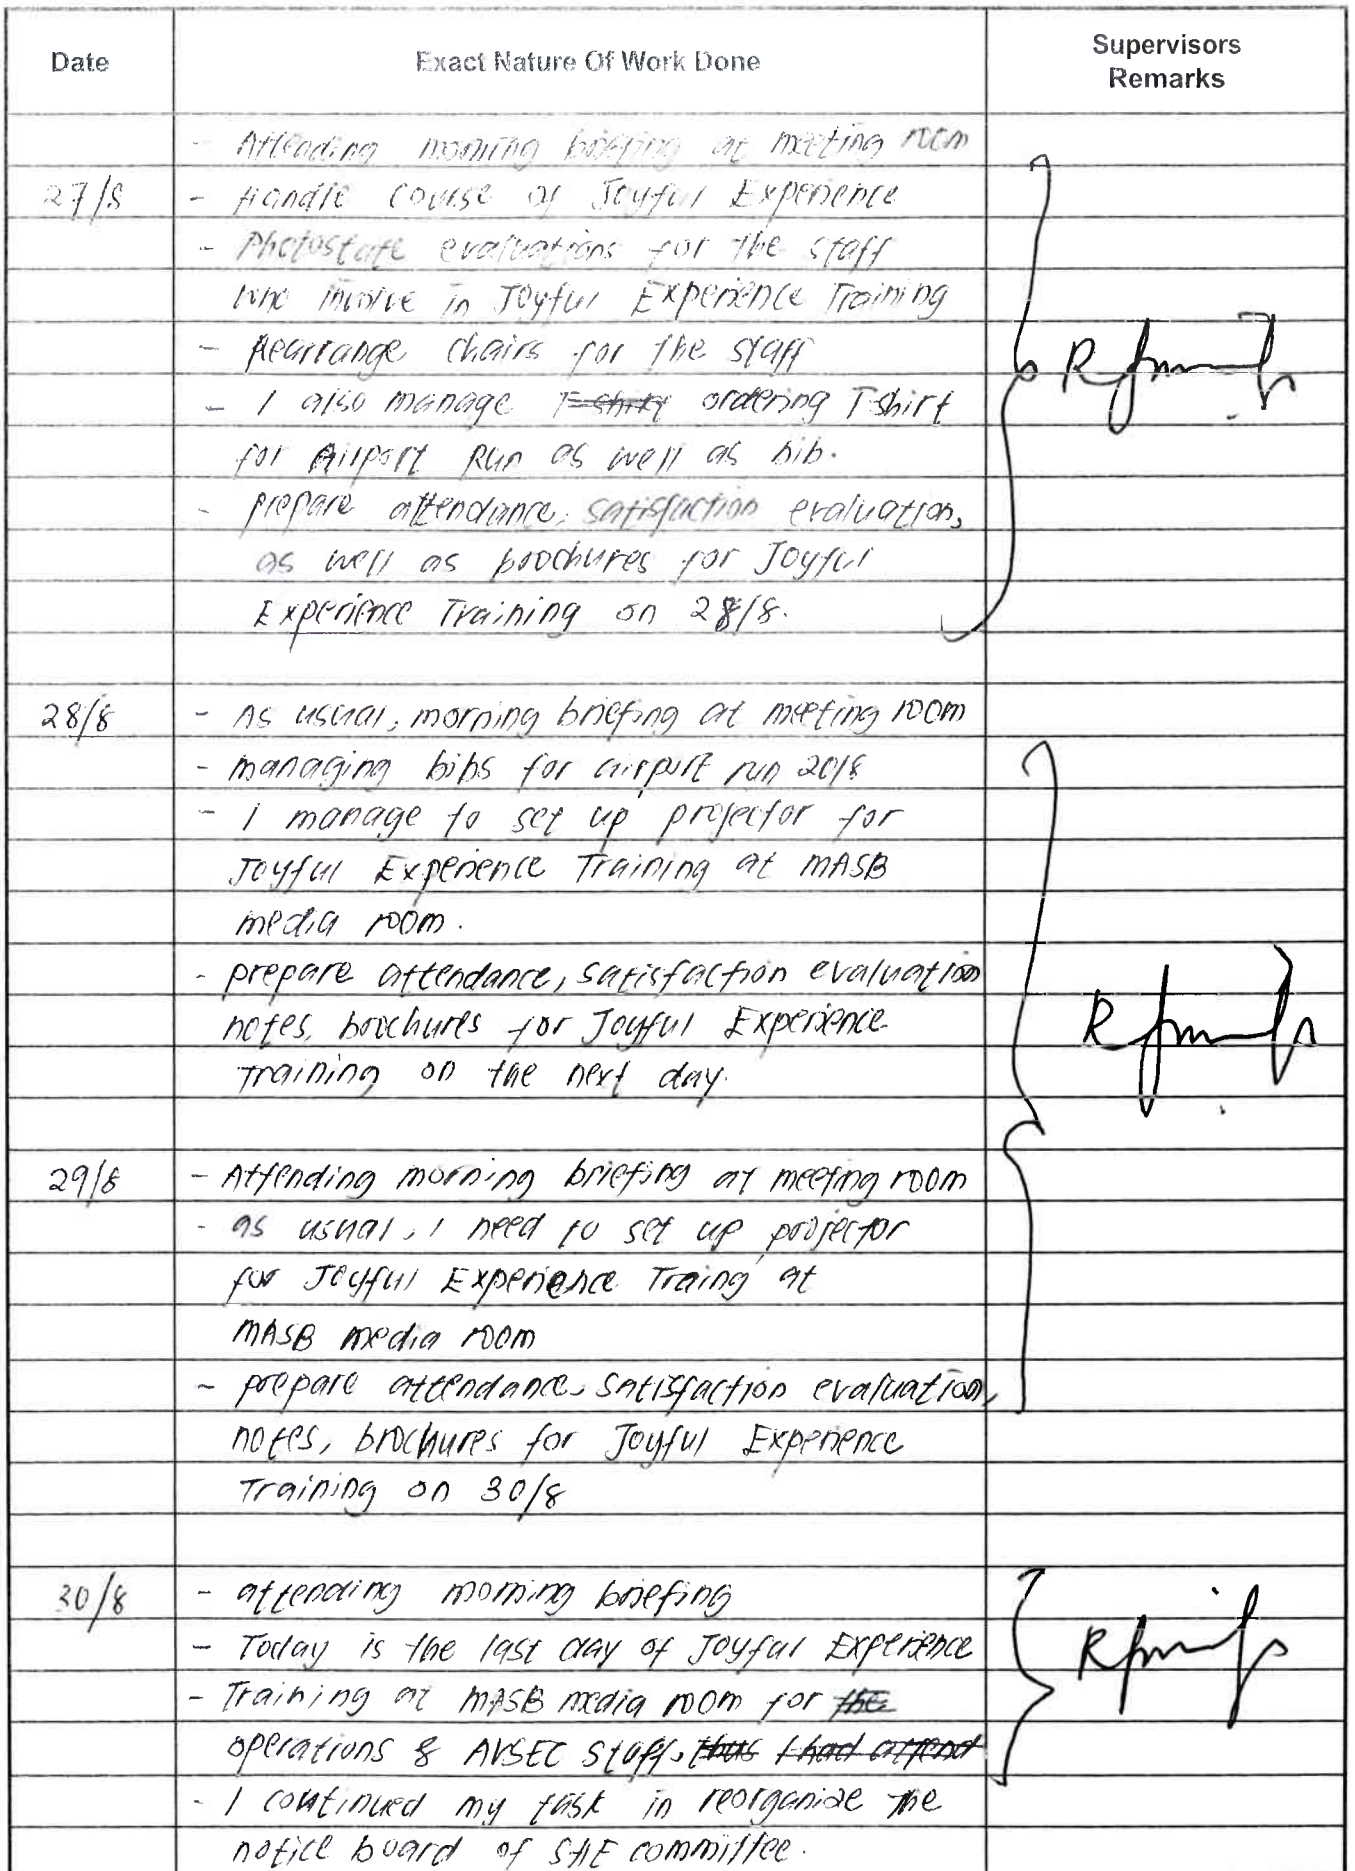 Date Exact Nature Of Work Done Supervisors Remarks
- Attending morning briefing at meeting room
27/8 - Handle course of Joyful Experience
- Photostate evaluations for the staff
who involve in Joyful Experience Training
- Rearrange chairs for the staff
- I also manage T-shirt ordering T shirt
for Airport Run as well as bib.
- prepare attendance, satisfaction evaluation,
as well as brochures for Joyful
Experience Training on 28/8.
28/8 - As usual, morning briefing at meeting room
- managing bibs for airport run 2018
- I manage to set up projector for
Joyful Experience Training at MASB
media room.
- prepare attendance, satisfaction evaluation
notes, brochures for Joyful Experience
Training on the next day.
29/8 - Attending morning briefing at meeting room
- as usual, I need to set up projector
for Joyful Experience Traing at
MASB media room
- prepare attendance, satisfaction evaluation,
notes, brochures for Joyful Experience
Training on 30/8
30/8 - attending morning briefing
- Today is the last day of Joyful Experience
- Training at MASB media room for the
operations & AVSEC staff. thus I had attend
- I continued my task in reorganize the
notice board of SHE committee.